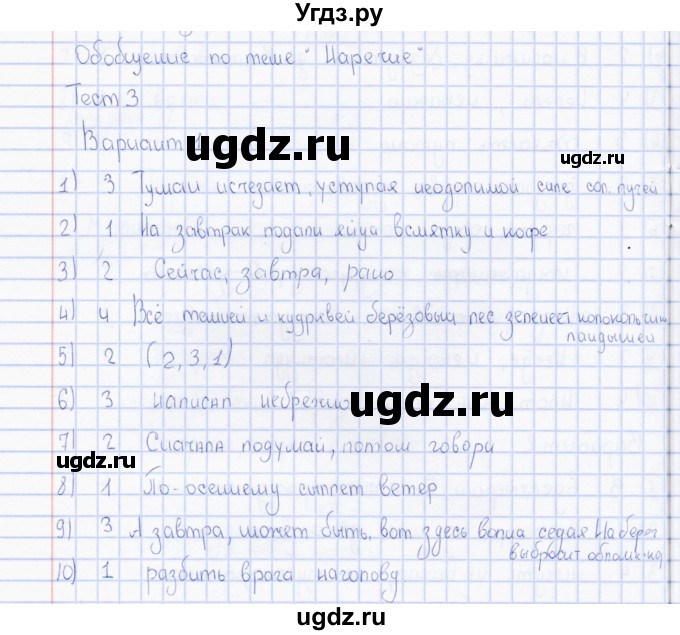 Угдз.ру
Обобщение по теме "Наречие"
Тест 3
Вариант 1
ugdz.ru
ugdz.ru
1) 3 Туман исчезает, уступая неодолимой силе сол. лучей
2) 1 На завтрак подали яйца всмятку и кофе
3) 2 Сейчас, завтра, рано
4) 4 Всё темней и кудрявей берёзовый лес зеленеет колокольчик
ландышей
5) 2 (2,3,1)
6) 3 написал небрежно
ugdz.ru
7) 2 Сначала подумай, потом говори
ugdz.ru
8) 1 По-осеннему сыплет ветер
9) 3 А завтра, может быть, вот здесь волна седая На берег
выбросит обломок
10) 1 разбить врага наголову
ugdz.ru
ugdz.ru